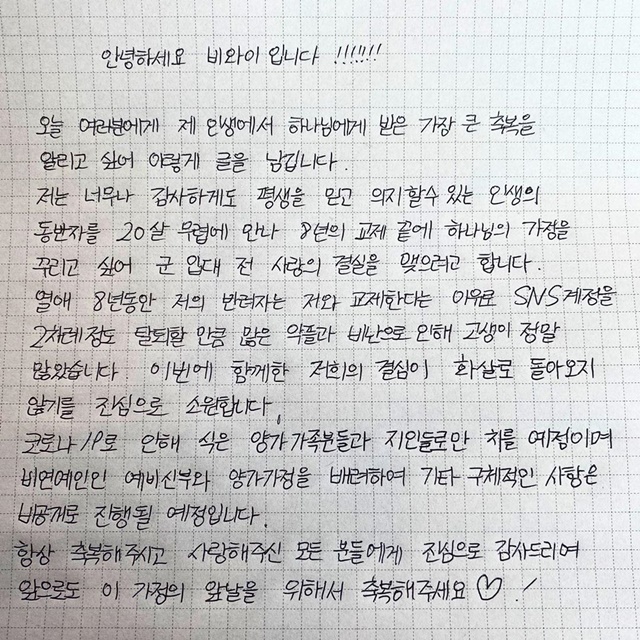 안녕하세요 비와이 입니다 !!!!!!!
오늘 여러분에게 제 인생에서 하나님에게 받은 가장 큰 축복을
알리고 싶어 이렇게 글을 남깁니다.
저는 너무나 감사하게도 평생을 믿고 의지할수 있는 인생의
동반자를 20살 무렵에 만나 8년의 교제 끝에 하나님의 가정을
꾸리고 싶어 군 입대 전 사랑의 결실을 맺으려고 합니다.
열애 8년동안 저의 반려자는 저와 교제한다는 이유로 SNS계정을
2차례정도 탈퇴할 만큼 많은 악플과 비난으로 인해 고생이 정말
많았습니다. 이번에 함께한 저희의 결심이 화살로 돌아오지
않기를 진심으로 소원합니다.
코로나19로 인해 식은 양가가족분들과 지인들로만 치를 예정이며
비연예인인 예비신부와 양가가정을 배려하여 기타 구체적인 사항은
비공개로 진행될 예정입니다.
항상 축복해주시고 사랑해주신 모든 분들에게 진심으로 감사드리며
앞으로도 이 가정의 앞날을 위해서 축복해주세요♡.!